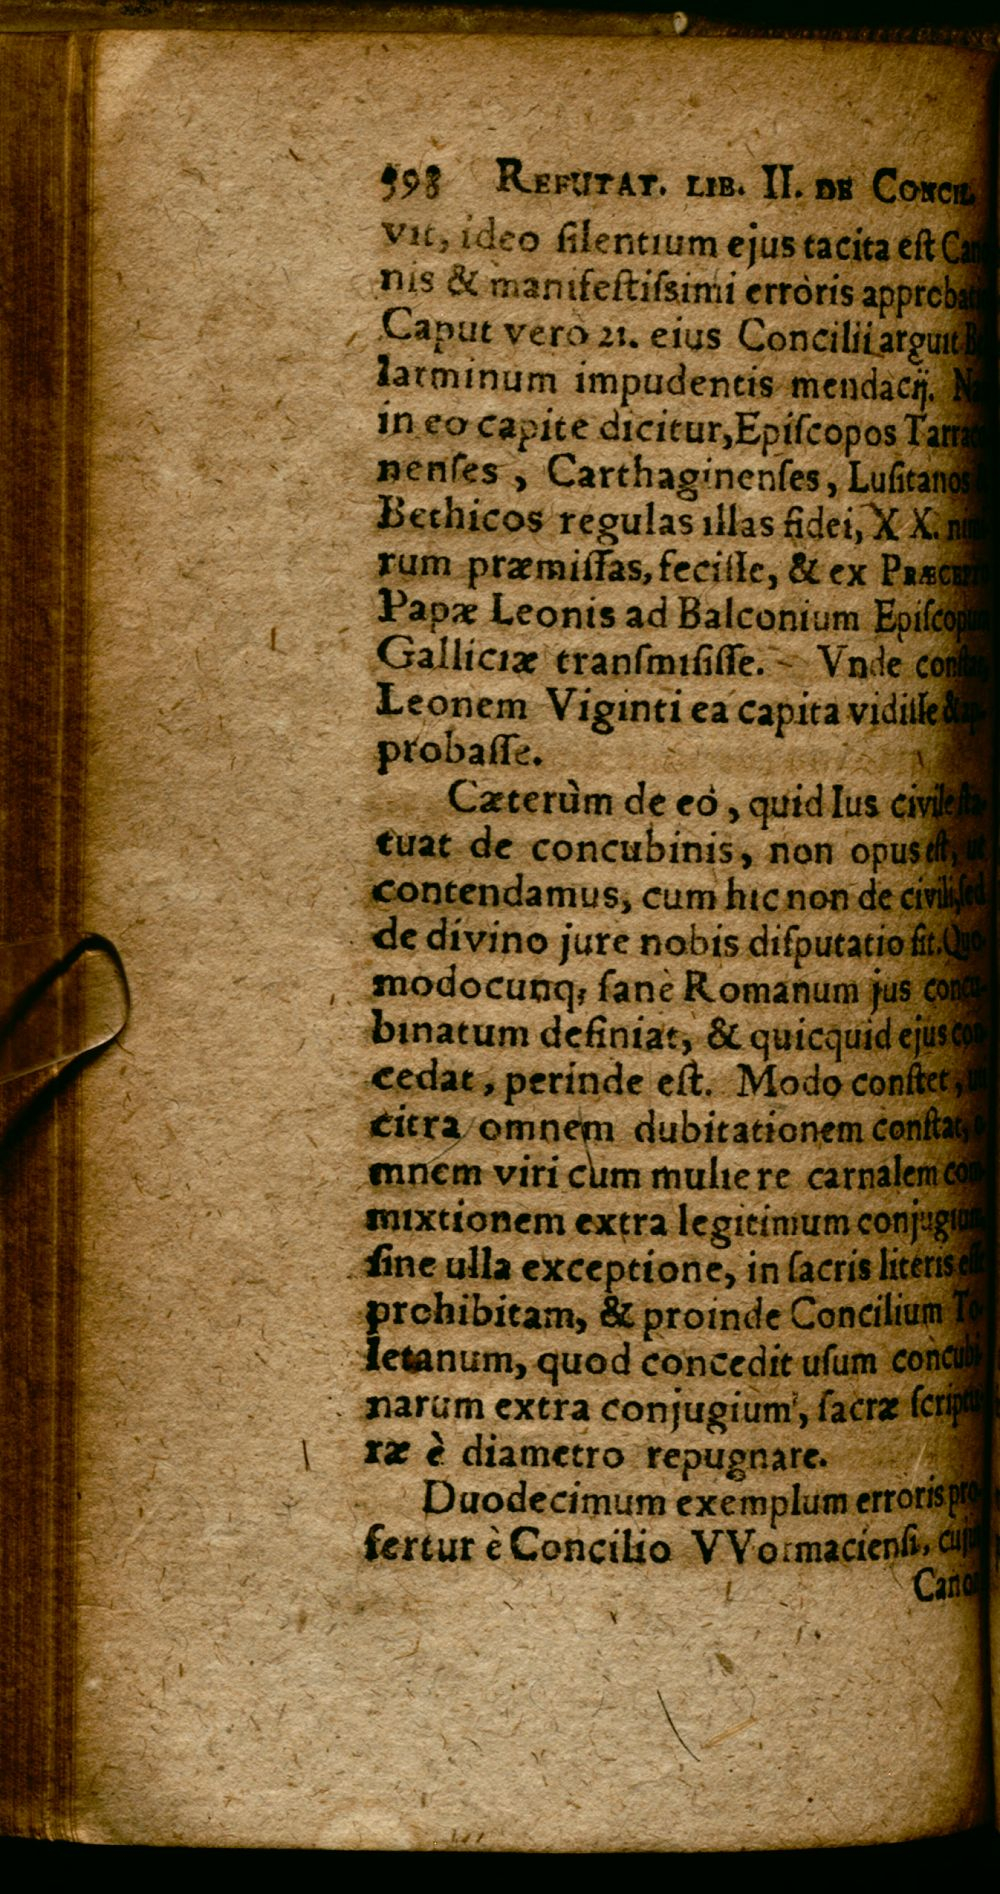 598 REFUTAT. LIB. II. DE CONCIL.
vit, ideo ſilentium ejus tacita eſt
nis & manifeſtiſsimi erròris
Caput verò 21. eius Concilii arguit
larminum impudentis mendacij.
in eo capite dicitur, Epiſcopos
nenſes, Carthaginenſes, Luſitanos
Bethicos regulas illas fidei, XX.
rum præmiſſas, feciſſe, & ex PRÆCEPTO
Papæ Leonis ad Balconium Epiſcopum
Galliciæ tranſmiſiſſe. Vnde conſtat,
Leonem Viginti ea capita vidiſſe & ap-
probaſſe.
Cæterùm de eo, quid Ius civile ſta-
tuat de concubinis, non opus eſt, ut
contendamus, cum hic non de civili, ſed
de divino jure nobis diſputatio ſit. Quo-
modocunq; ſanè Romanum jus concu-
binatum definiat, & quicquid ejus con-
cedat, perinde eſt. Modo conſtet,
citra omnem dubitationem conſtat, o-
mnem viri cum muliere carnalem com-
mixtionem extra legitimum conjugium,
ſine ulla exceptione, in ſacris literis eſſe
prohibitam, & proinde Concilium To-
letanum, quod concedit uſum concubi-
narum extra conjugium, ſacræ ſcriptu-
ræ è diametro repugnare.
Duodecimum exemplum erroris pro-
fertur è Concilio VVormacienſi, cujus